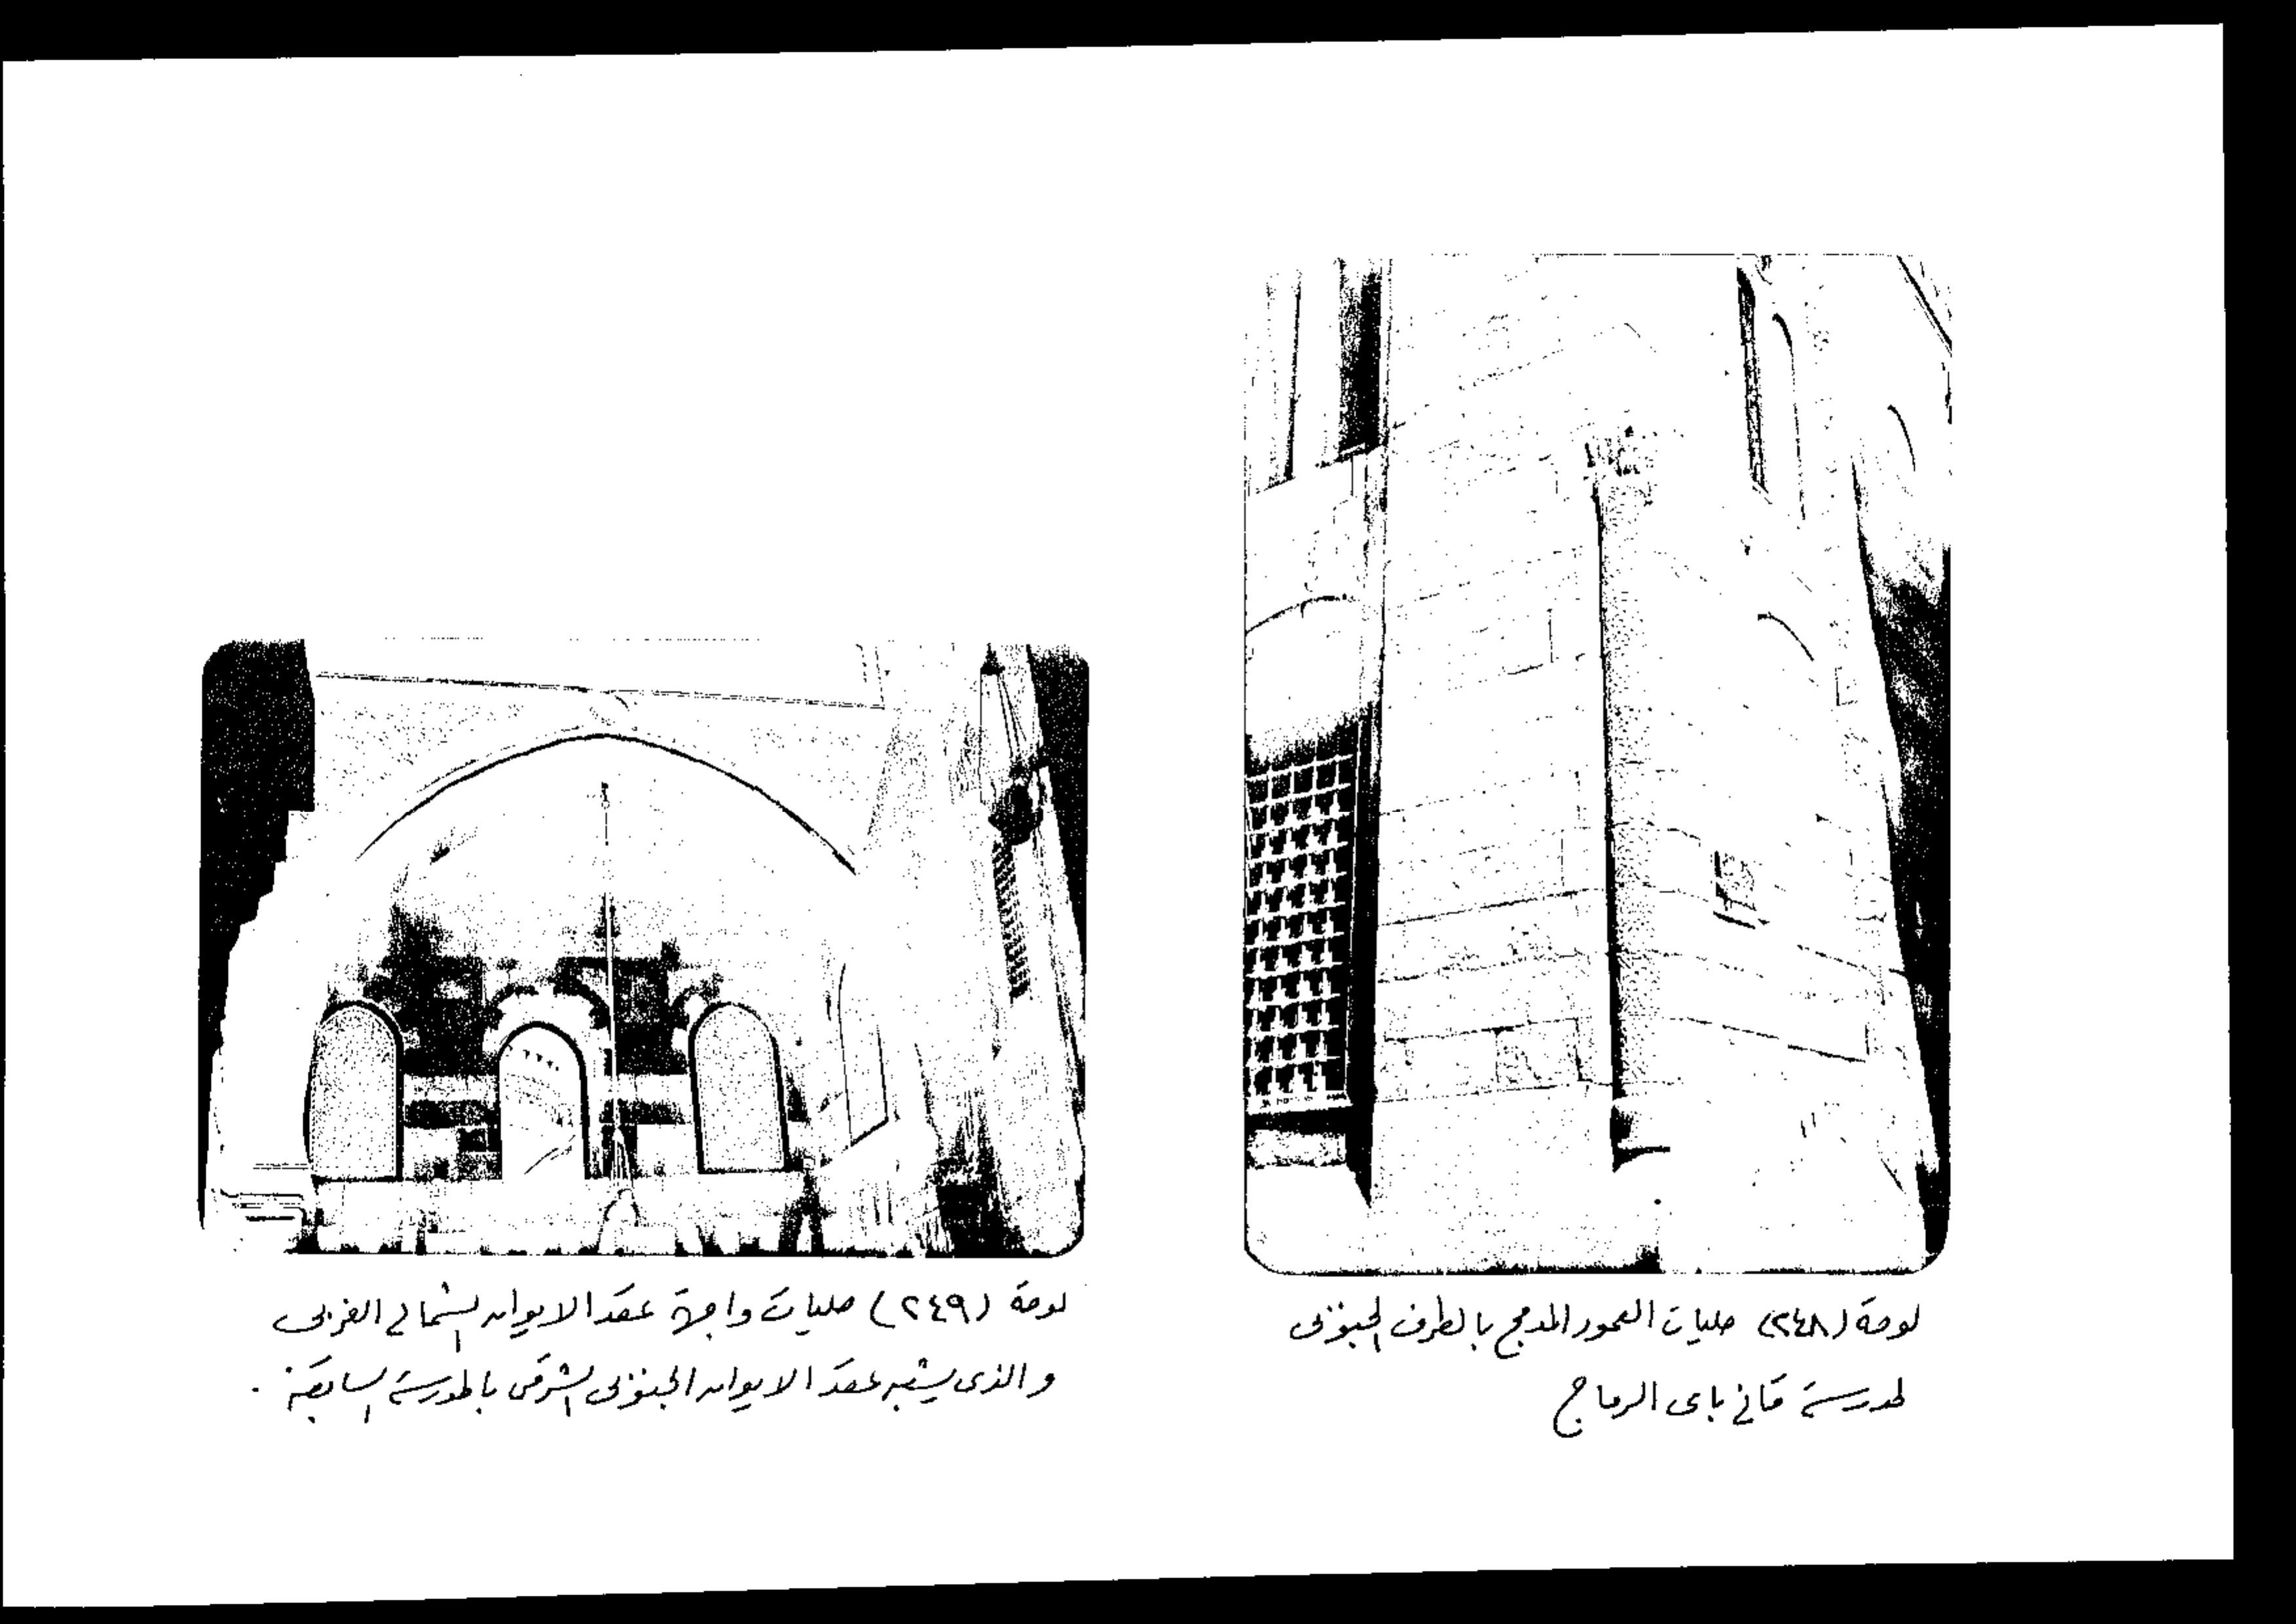 لوحة (٢٤٨) حليات العمود المدمج بالطرف الجنوبى
لمدرسة قانى باى الرماح
لوحة (٢٤٩) حليات واجهة عقد الايوان الشمالى الغربى
والذى يشبه عقد الايوان الجنوبى الشرقى بالمدرسة السابقة .